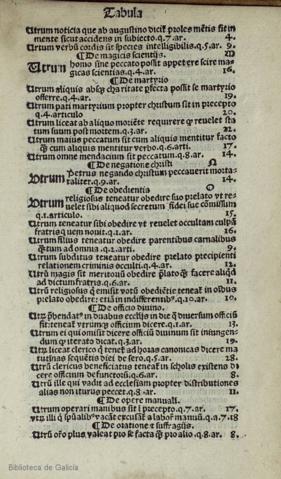 Tabula
Utrum noticia que ab augustino dicit̃ proles mẽtis sit in
mente sicut accidens in subiecto.q.7.ar. 4.
Utrum verbũ cordis sit species intelligibilis.q.5.ar. 9.
¶ De magicis scientijs. M
Utrum homo sine peccato possit appetere scire ma
gicas scientias.q.4.ar. 16.
¶ De martyrio
Utrum aliquis absq̃ charitate pfecta possit se martyrio
offerre.q.4.ar. 19.
Utrum pati martyrium propter christum sit in precepto
q.4.articulo 20.
Utrum liceat ab aliquo requirere ꝙ reuelet sta
tum suum post mortem.q.3.ar. 22.
Utrum maius peccatum sit cum aliquis mentitur facto
ꝙ̃ cum aliquis mentitur verbo.q.6.arti. 17.
Utrum omne mendacium sit peccatum.q.8.ar. 14.
¶ De negatione christi N
Utrum Petrus negando christum peccauerit morta
liter.q.9.ar. 14.
¶ De obedientia O
Utrum religiosus teneatur obedire suo prelato vt re
uelet sibi aliquod secretum fidei sue cõmissum
q.1.articulo. 15.
Utrum teneatur sibi obedire vt reuelet occultam culpã
fratris quem nouit.q.1.ar. 16.
Utrum filius teneatur obedire parentibus carnalibus
q̃tum ad omnia.q.1.arti. 9.
Utrum subditus teneatur obedire prelato precipienti
relationem criminis occulti.q.4.ar. 12.
Utrũ magis sit meritoriũ obedire p̃lato ꝙ̃ facere aliqđ
ad dictum fratris.q.6.ar. 11.
Utrũ religiosus ꝗ emisit votũ obediẽtie teneat̃ in oĩbus
prelato obedire: etiã in indifferentib⁹.q.10.ar. 10.
¶ De officio diuino.
Utꝝ p̃bendat⁹ in duabus ecclijs in die ꝗ̃ diuersum officiũ
sit: teneat̃ vtrumꝙ officium dicere.q.1.ar. 13.
Utrum ei qui omisit dicere officiũ diuinum sit iniungen
dum ꝙ iteratio dicat.q.3.ar. 19.
Utꝝ liceat clerico ꝗ tenet̃ ad horas canonicas dicere ma
tutinas sequẽtis diei de sero.q.5.ar. 28.
Utrũ clericus beneficiatus teneat̃ in scholis existens di
cere officium defunctorũ.q.6.ar. 8.
Utrũ ille qui vadit ad ecclesiam propter distributiones
alias non iturus peccet.q.8.ar. 11.
¶ De opere manuali.
Utrum operari manibus sit ĩ precepto.q.7.ar. 17.
¶ De oratione & suffragijs.
Utrũ orõ plus valeat pro se facta ꝙ̃ pro alio.q.8.ar. 8.
Biblioteca de Galicia